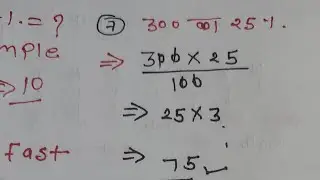 1. = ?
mple
⇒ 10
Fast
⑦ 300 का 25%.
⇒ 300 × 25
100
⇒ 25 × 3
⇒ 75